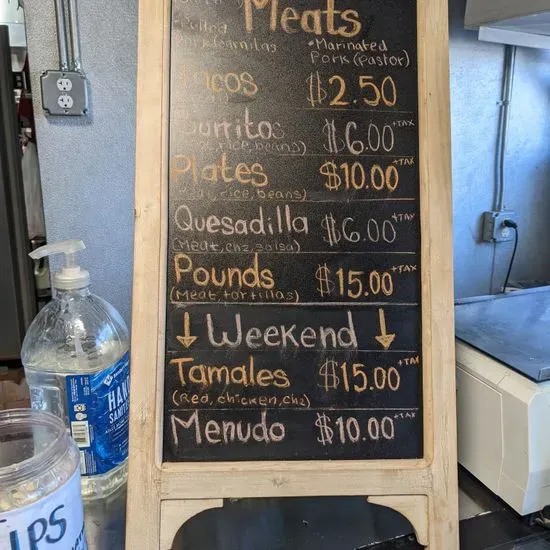 Meats
• Marinated
Pork (pastor)
Tacos $2.50
Burritos $6.00 +TAX
rice, beans)
Plates $10.00 +TAX
(Meat, rice, beans)
Quesadilla $6.00 +TAX
(Meat, chz, salsa)
Pounds $15.00 +TAX
(Meat, tortillas)
↓ Weekend ↓
Tamales $15.00 +TAX
(Red, chicken, chz)
Menudo $10.00 +TAX
HAND
TIPS